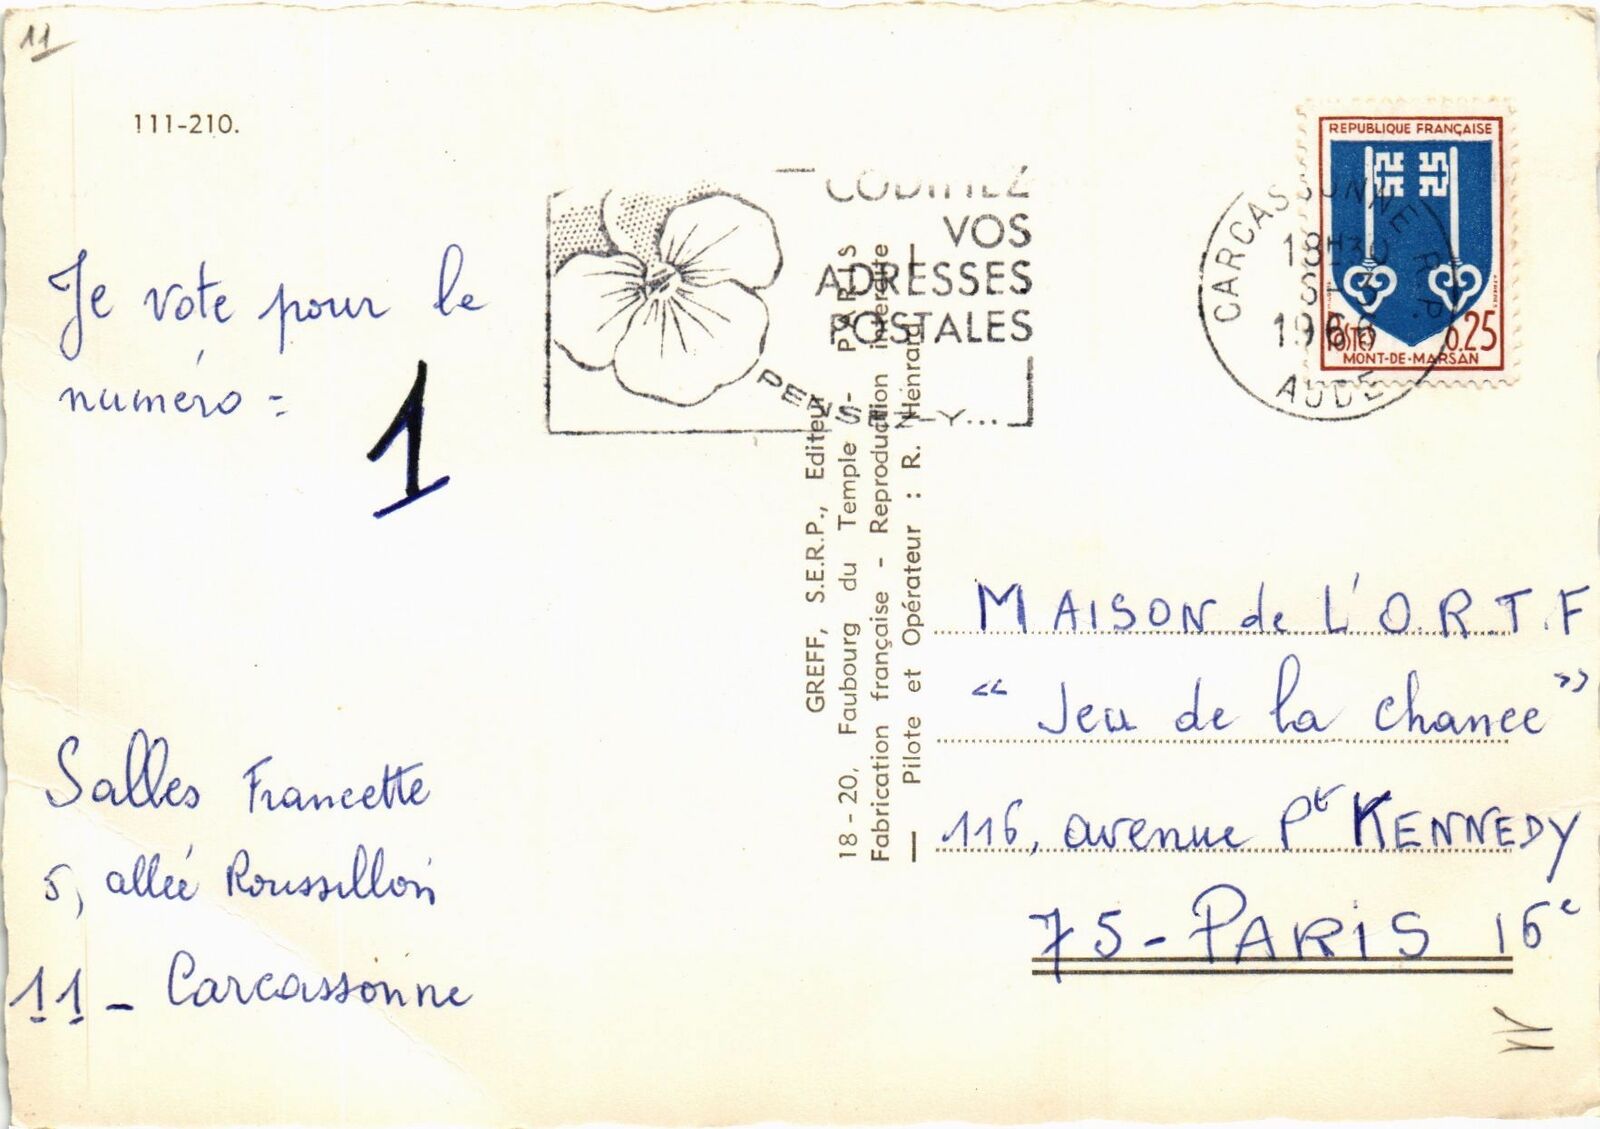 11
111-210.
Je vote pour le
numéro =
1
Salles Francette
5, allée Roussillon
11 - Carcassonne
CODIFIEZ
VOS
ADRESSES
POSTALES
PENSEZ-Y...
GREFF, S.E.R.P., Editeur
18-20, Faubourg du Temple - PARIS
Fabrication française - Reproduction interdite
— Pilote et Opérateur : R. Henrard —
REPUBLIQUE FRANÇAISE
POSTES 0.25
MONT-DE-MARSAN
CARCASSONNE R.P.
18H30
1966
AUDE
MAISON de L'O.R.T.F
"Jeu de la chance"
116, avenue Pt KENNEDY
75 - PARIS 16e
11